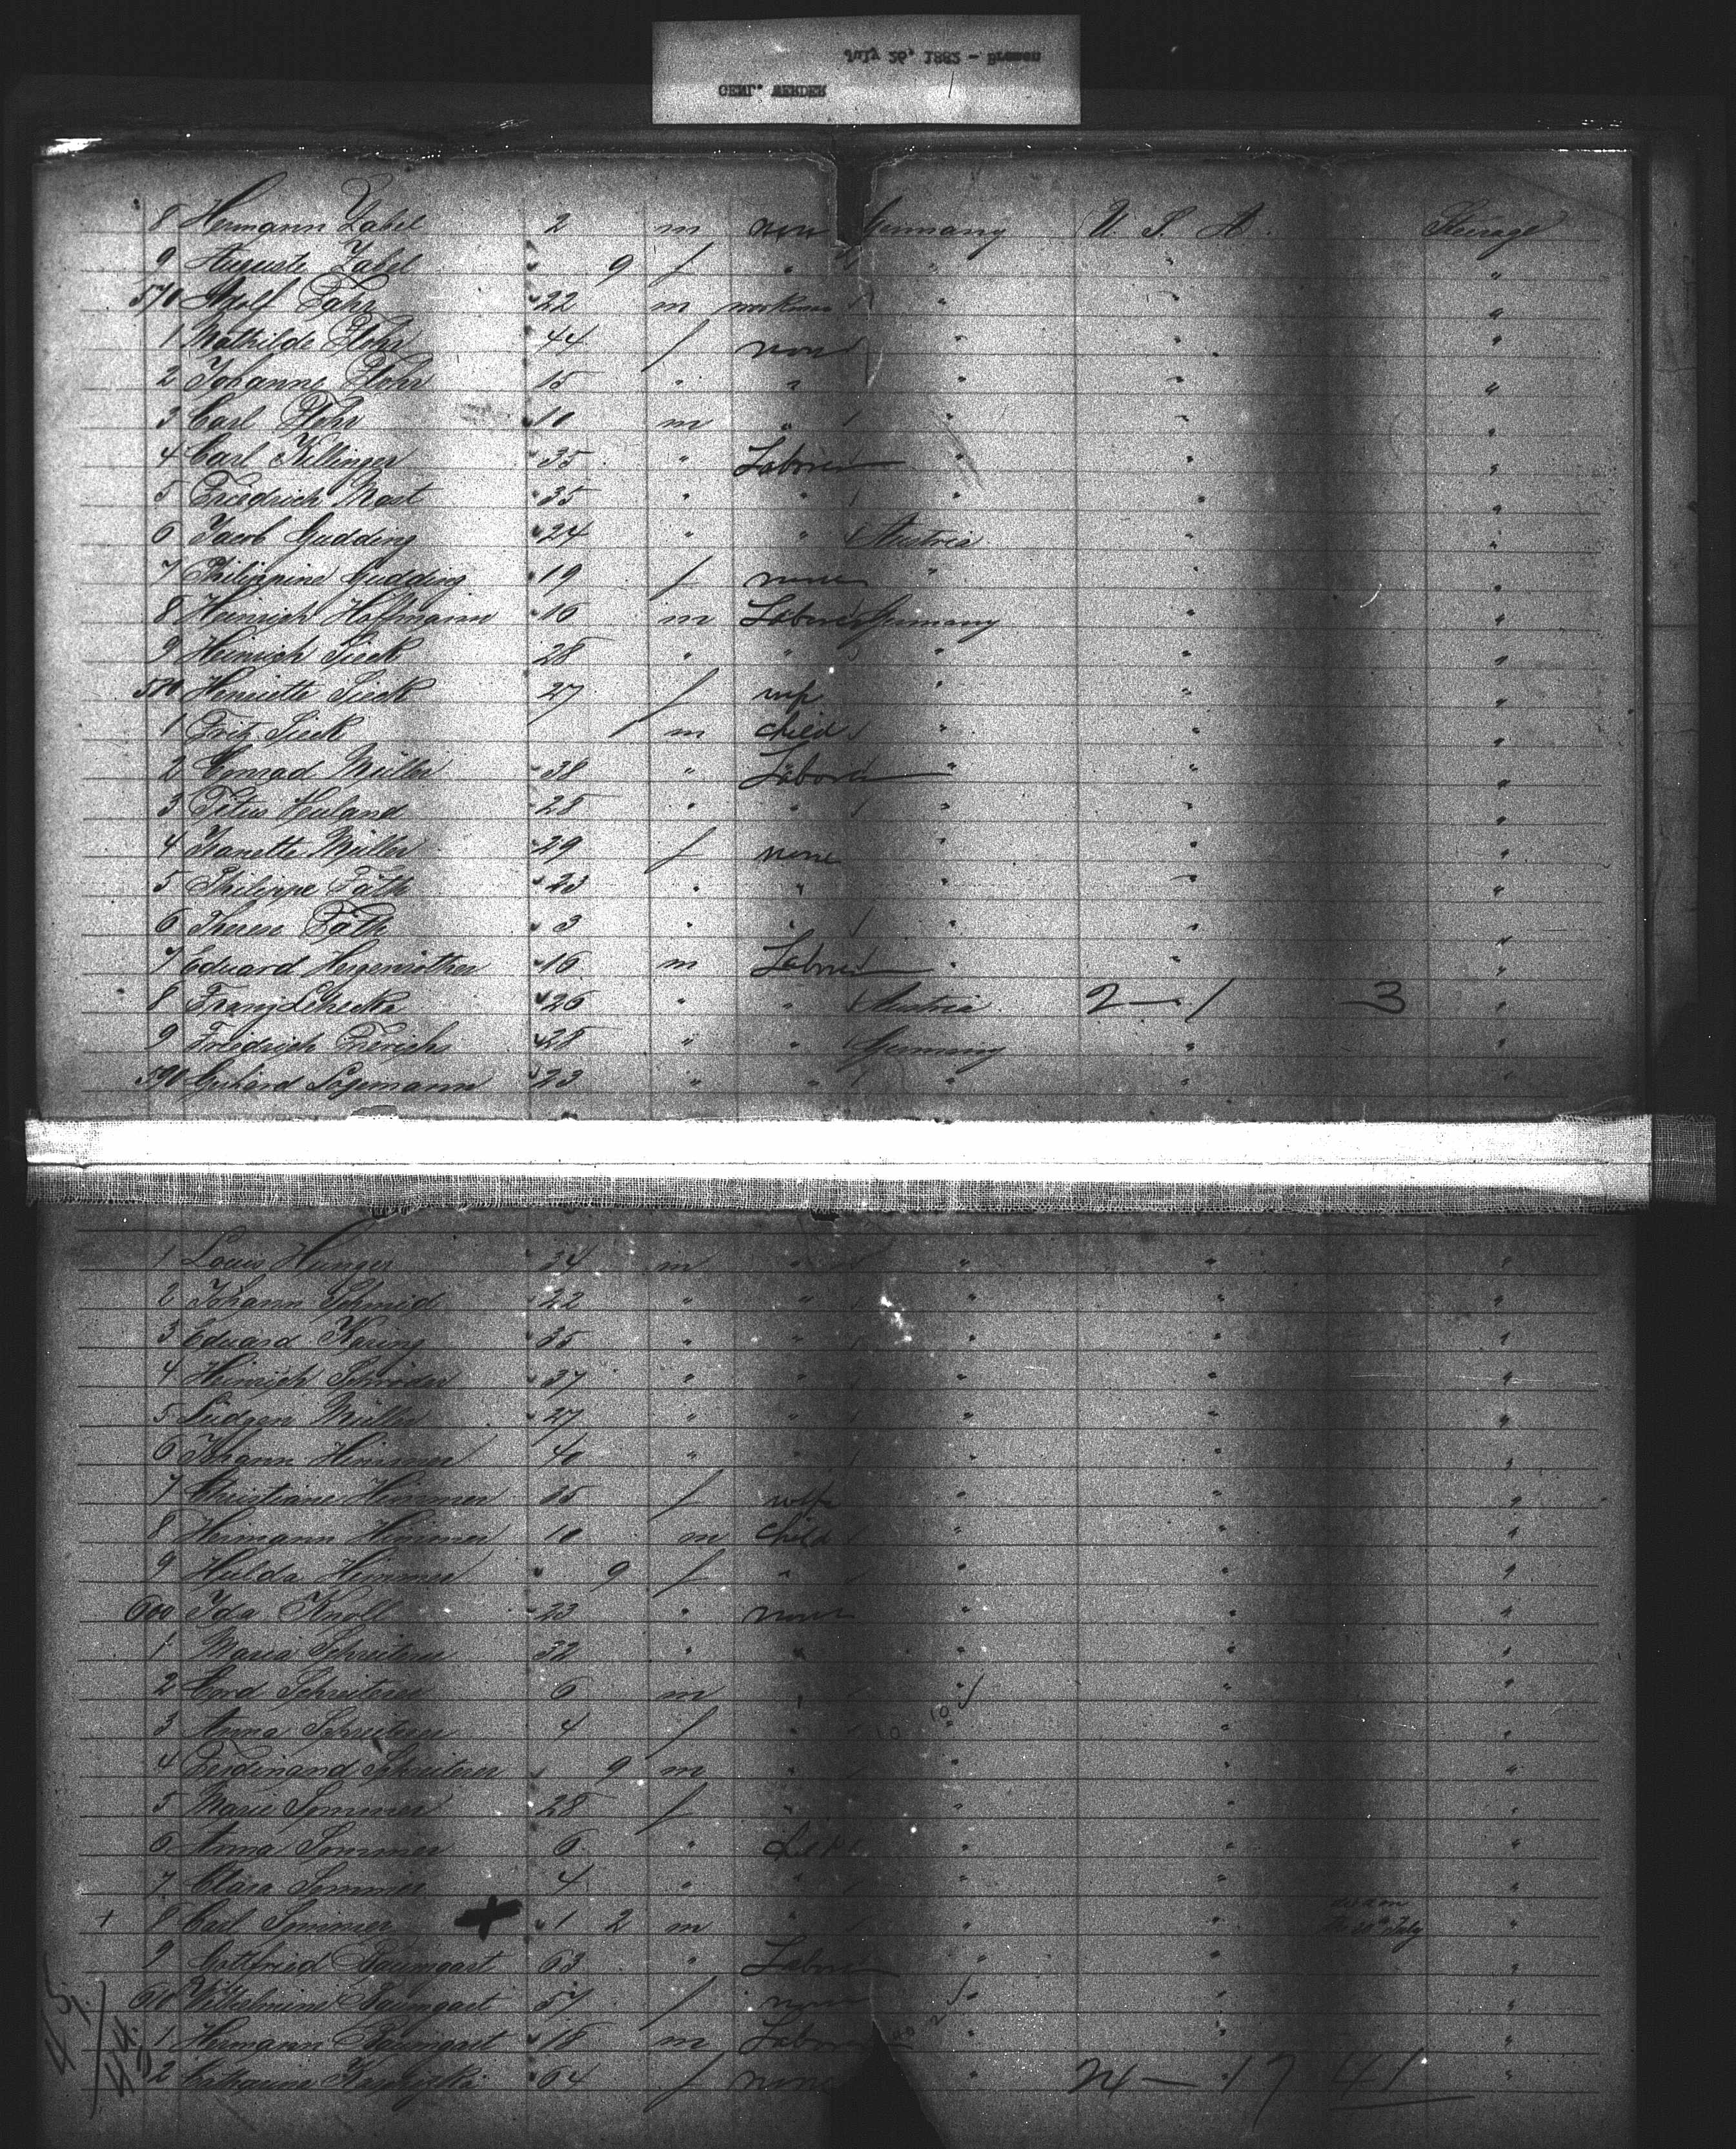 July 26, 1882 - Bremen
GENL. WERDER
8 Hermann Zabel 2 m none Germany U. S. A. Steerage
9 Auguste Zabel 9 f " " " "
570 Adolf 22 m workman " " "
1 Mathilde Flohr 44 f none " " "
2 Johanne Flohr 15 " " " " "
3 Carl Flohr 10 m " " " "
4 Carl Killinger 35 " Laborer " " "
5 Friedrich Mast 35 " " " " "
6 Jacob Gudding 24 " " Austria " "
7 Philippine Gudding 19 f none " " "
8 Heinrich Hoffmann 16 m Laborer Germany " "
9 Heinrich Sieck 28 " " " " "
580 Henriette Sieck 27 f wife " " "
1 Fritz Sieck 1 m child " " "
2 Conrad Müller 38 " Laborer " " "
3 Heuland 28 " " " " "
4 Nanette Müller 29 f none " " "
5 Philippe Fäth 23 " " " " "
6 Therese Fäth 3 " " " " "
7 Eduard Hergenröther 16 m Laborer " " "
8 Franz 26 " " Austria 2 — 1 3 "
9 Friedrich 28 " " Germany " "
590 Gerhard Logemann 23 " " " " "
1 Louis Hunger 34 m " " " "
2 Johann Schmid 22 " " " " "
3 Eduard 35 " " " " "
4 Heinrich Schröder 37 " " " " "
5 Müller 27 " " " " "
6 Johann Himmer 40 " " " " "
7 Christiane Himmer 35 f wife " " "
8 Hermann Himmer 10 m child " " "
9 Hulda Himmer 9 f " " " "
600 Ida Knoll 23 " none " " "
1 Maria Schreiterer 32 " " " " "
2 Cord Schreiterer 6 m " " " "
3 Anna Schreiterer 4 f " " " "
4 Ferdinand Schreiterer 9 m " " " "
5 Marie Sommer 28 f " " " "
6 Anna Sommer 6 " " " "
7 Clara Sommer 4 " " " " "
+ 8 Carl Sommer + 1 2 m " " " died on "
9 Gottfried Baumgart 63 " Laborer " " "
610 Wilhelmine Baumgart 57 f none " " "
1 Hermann Baumgart 18 m Laborer " " "
2 Catharine 64 f none " 24 — 17 41 "